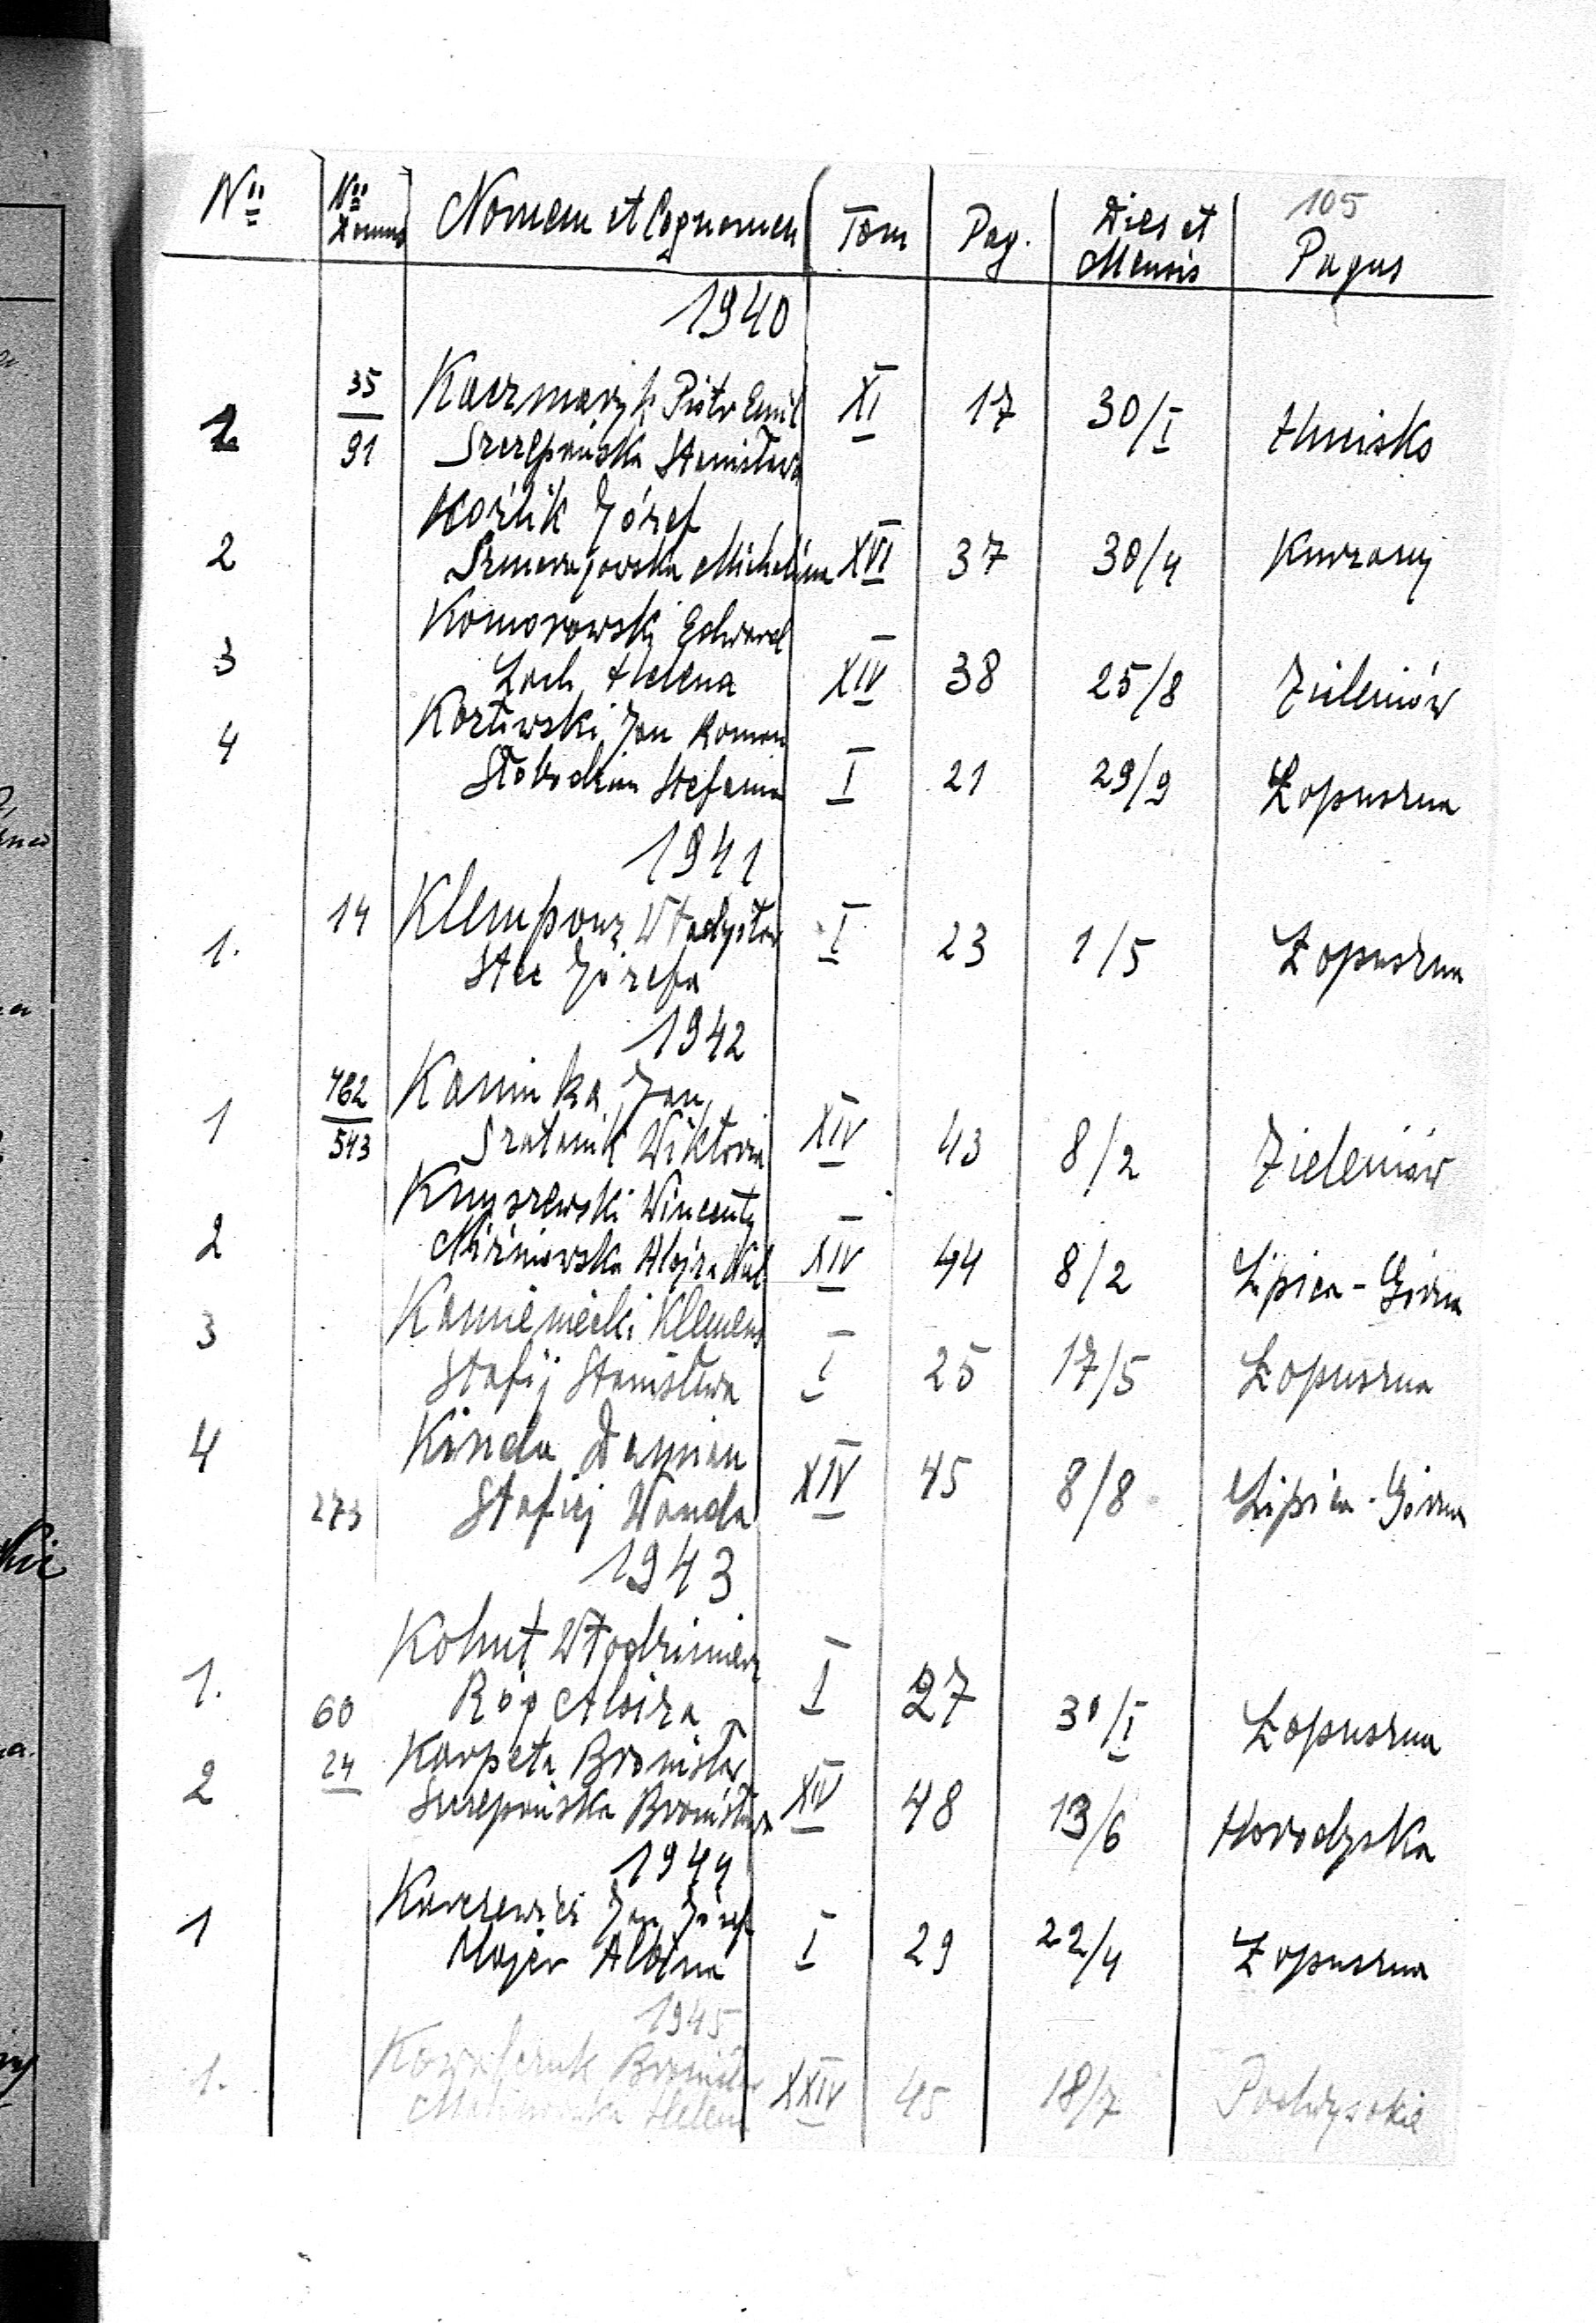 105
Nº Nº Domus Nomen et Cognomen Tom Pag. Dies et Mensis Pagus
1940
1 35/91 Kaczmaryk Piotr Emil XI 17 30/I Hnisko
Szczepańska Stanisława
Koźlik Józef
2 Michalina XVI 37 30/4 Kurzany
Komorowski Edward
3 Loch Helena XIV 38 25/8 Zieleniów
4 Jan Roman
Słobodzian Stefania I 21 29/9 Łopuszna
1941
1. 14 Klempouz Władysław I 23 1/5 Łopuszna
Stec Józefa
1942
1 462/543 Kaminka Jan XIV 43 8/2 Zieleniów
Szatanik Wiktoria
Knyszewski Wincenty
2 Niżniowska XIV 44 8/2 Lipica-Górna
3 Kamieniecki Klemens
Stafij Stanisława I 25 17/5 Łopuszna
4 Kinda Damian XIV 45 8/8 Lipica-Górna
273 Stafiej Wanda
1943
Kohut Włodzimierz
1. 60 Róg Aloiza I 27 30/I Łopuszna
2 24 Karpeta Bronisław XIV 48 13/6 Horodyska
Szczepańska Bronisława
1944
1 Karczewicz Jan Józef I 29 22/4 Łopuszna
Majer Albina
1945
1. Kowalczuk Bronisław XXIV 45 18/7 Podwysokie
Helena